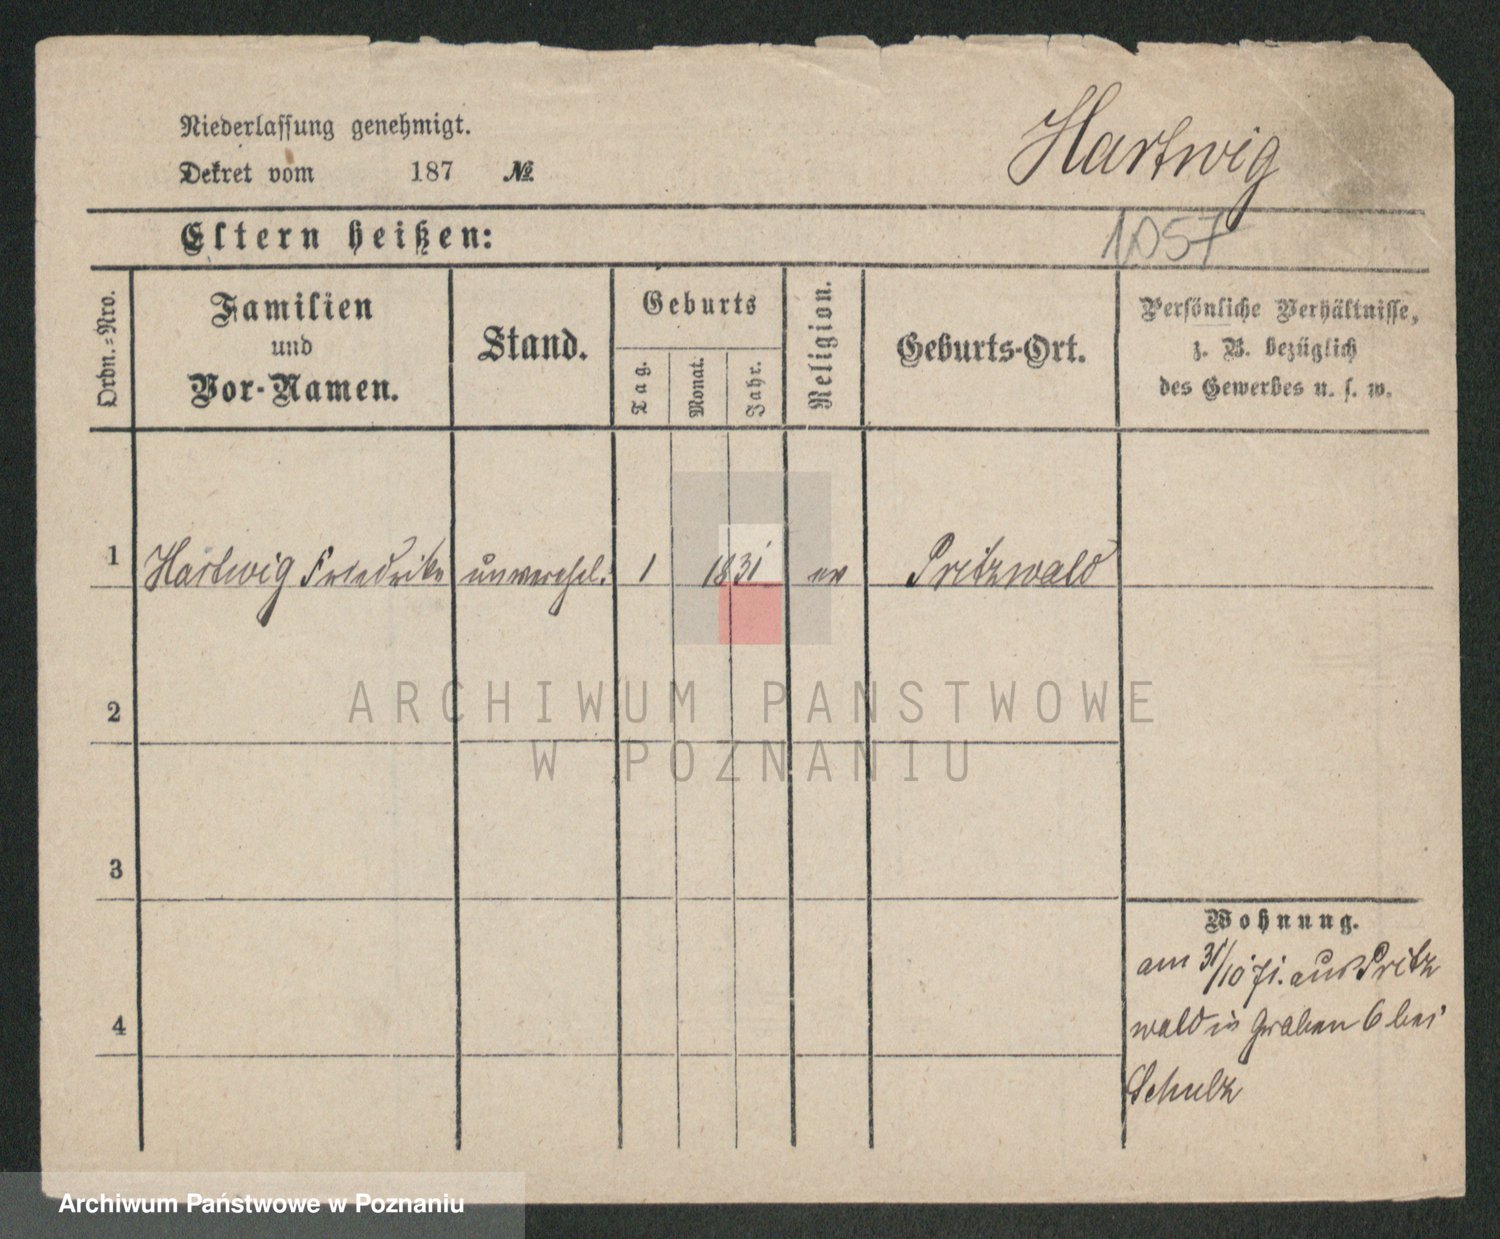 Niederlassung genehmigt.
Dekret vom 187 №
Hartwig
1057
Eltern heißen:
Ordn.-Nro.
Familien
und
Vor-Namen.
Stand.
Geburts
Tag.
Monat.
Jahr.
Religion.
Geburts-Ort.
Persönliche Verhältnisse,
z. B. bezüglich
des Gewerbes u. s. w.
1 Hartwig Friedrike unverehel. 1 1831 ev Pritzwald
2
3
4
Wohnung.
am 31/10 71. aus Pritz
wald in Graben 6 bei
Schulz
ARCHIWUM PANSTWOWE
W POZNANIU
Archiwum Państwowe w Poznaniu